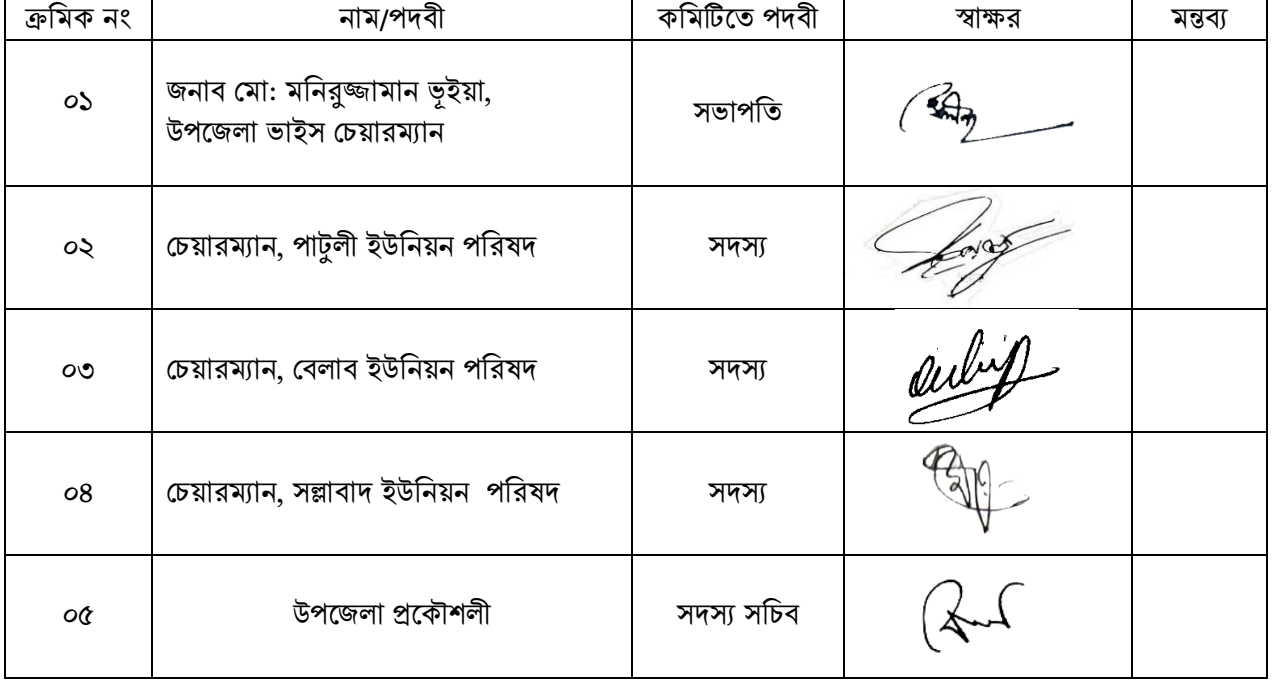 ক্রমিক নং নাম/পদবী কমিটিতে পদবী স্বাক্ষর মন্তব্য
০১ জনাব মো: মনিরুজ্জামান ভূইয়া, সভাপতি
উপজেলা ভাইস চেয়ারম্যান
০২ চেয়ারম্যান, পাটুলী ইউনিয়ন পরিষদ সদস্য
০৩ চেয়ারম্যান, বেলাব ইউনিয়ন পরিষদ সদস্য
০৪ চেয়ারম্যান, সল্লাবাদ ইউনিয়ন পরিষদ সদস্য
০৫ উপজেলা প্রকৌশলী সদস্য সচিব